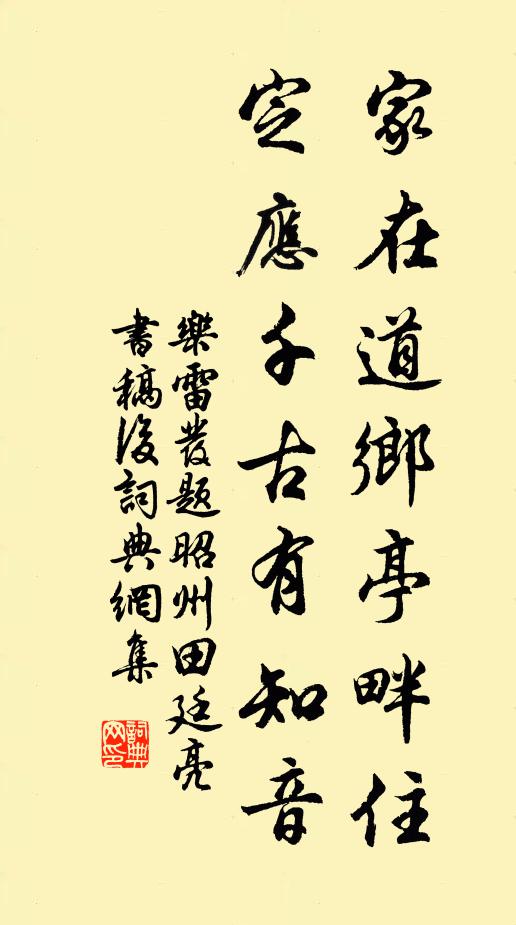 家在道鄉亭畔住
定應千古有知音
樂雷發題昭州田廷亮
書稿後詞典網集
詞典網印